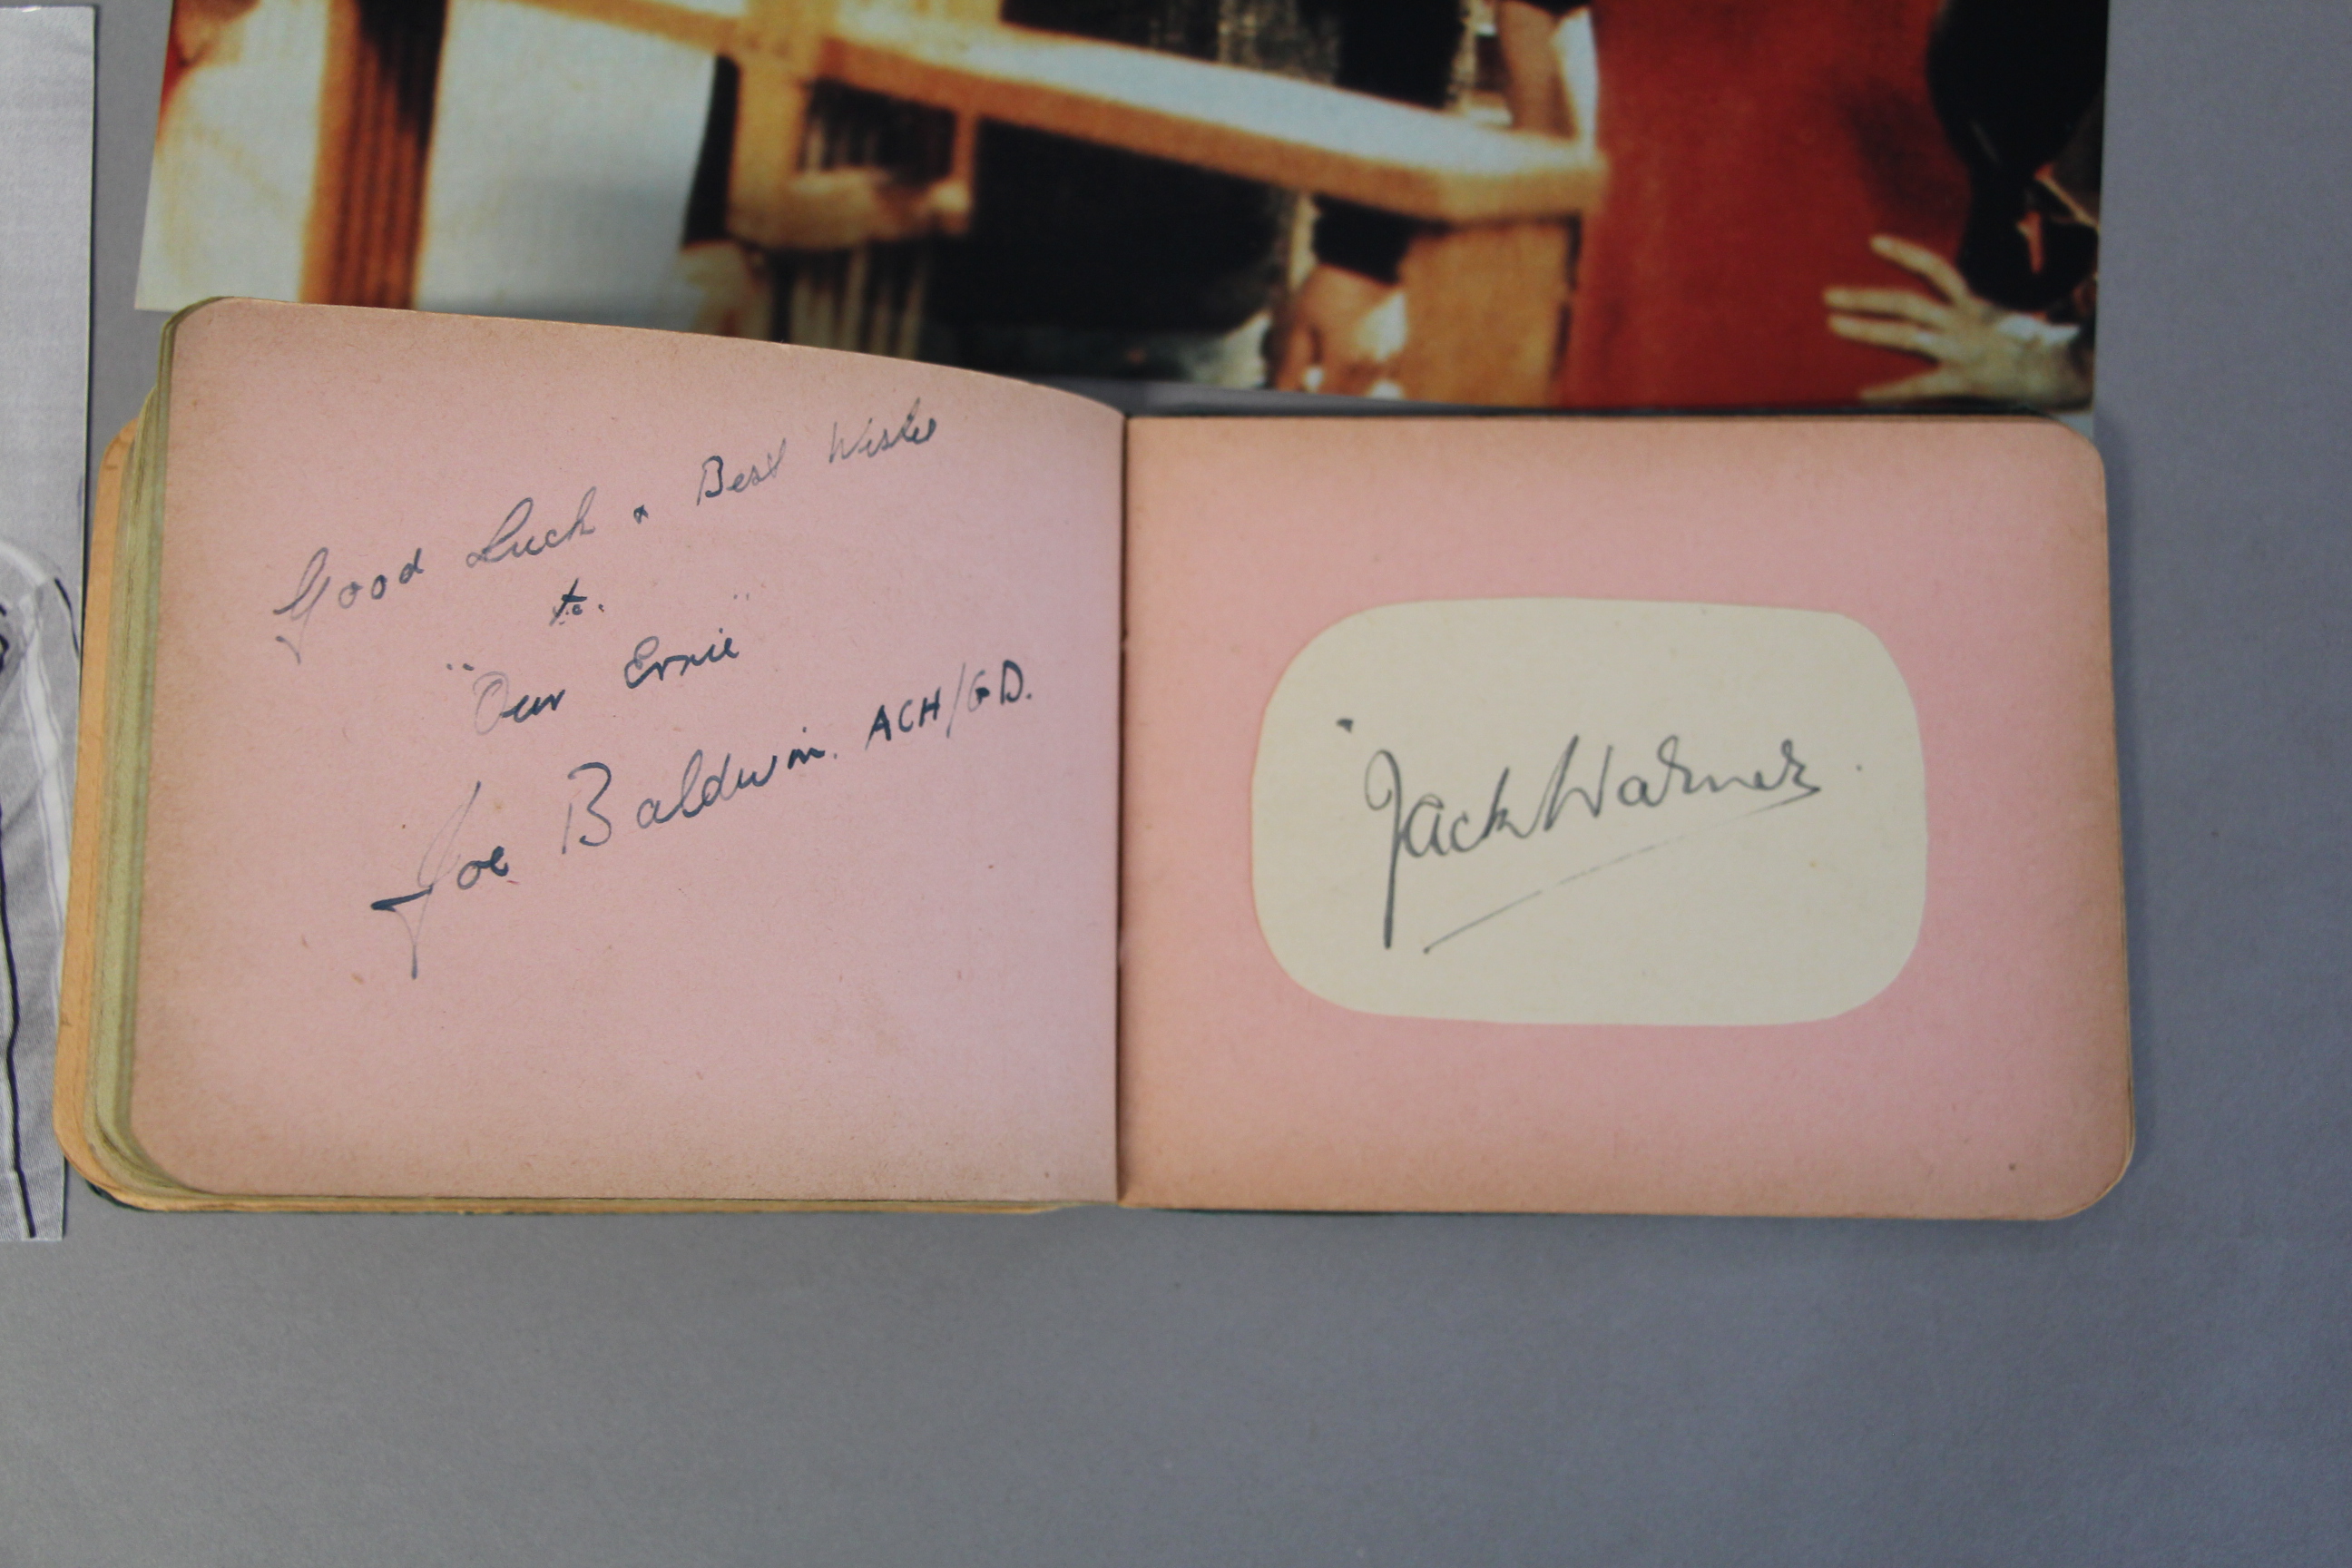 Good Luck + Best Wishes
to.
"Our Ernie"
Joe Baldwin. ACH/GD.
Jack Warner.